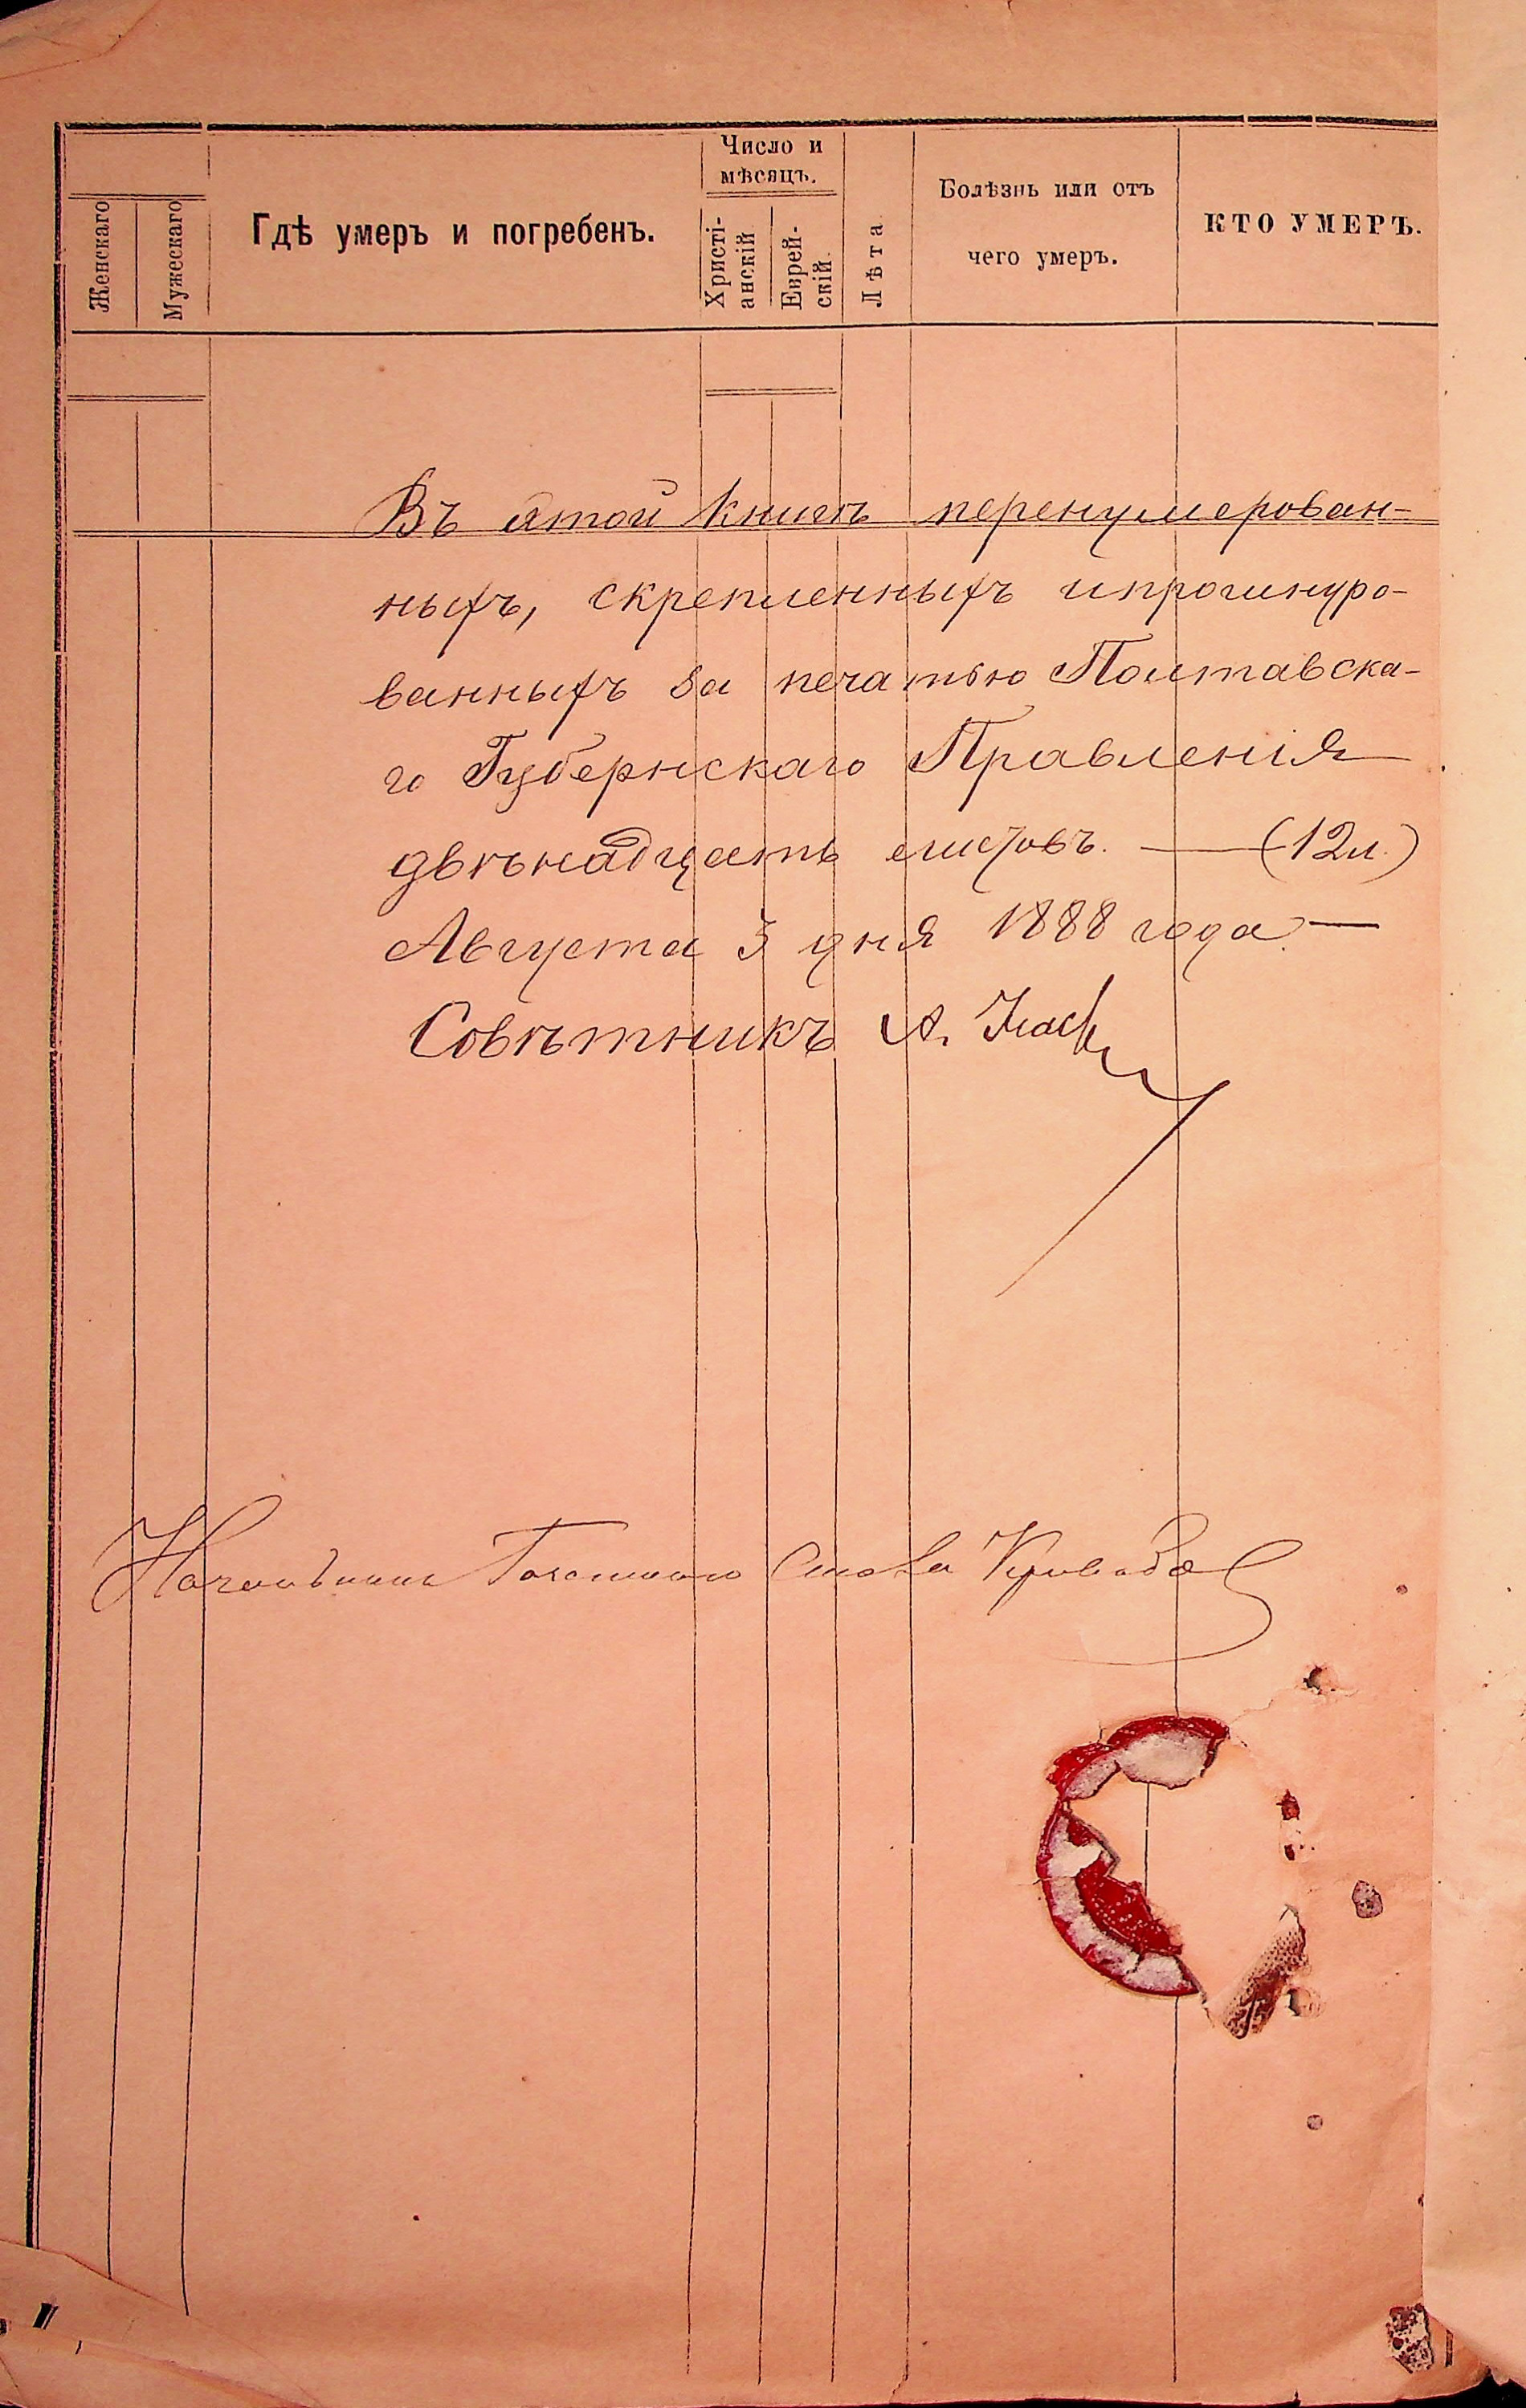 Женскаго
Мужескаго
Гдѣ умеръ и погребенъ.
Число и
мѣсяцъ.
Христі-
анскій
Еврей-
скій.
Лѣта
Болѣзнь или отъ
чего умеръ.
КТО УМЕРЪ.
Въ этой книгѣ перенумерован-
ныхъ, скрепленныхъ и прошнуро-
ванныхъ за печатью Полтавска-
го Губернскаго Правленія
двѣнадцать листовъ. — (12 л.)
Августа 3 дня 1888 года. —
Совѣтникъ А.
Начальникъ Стола